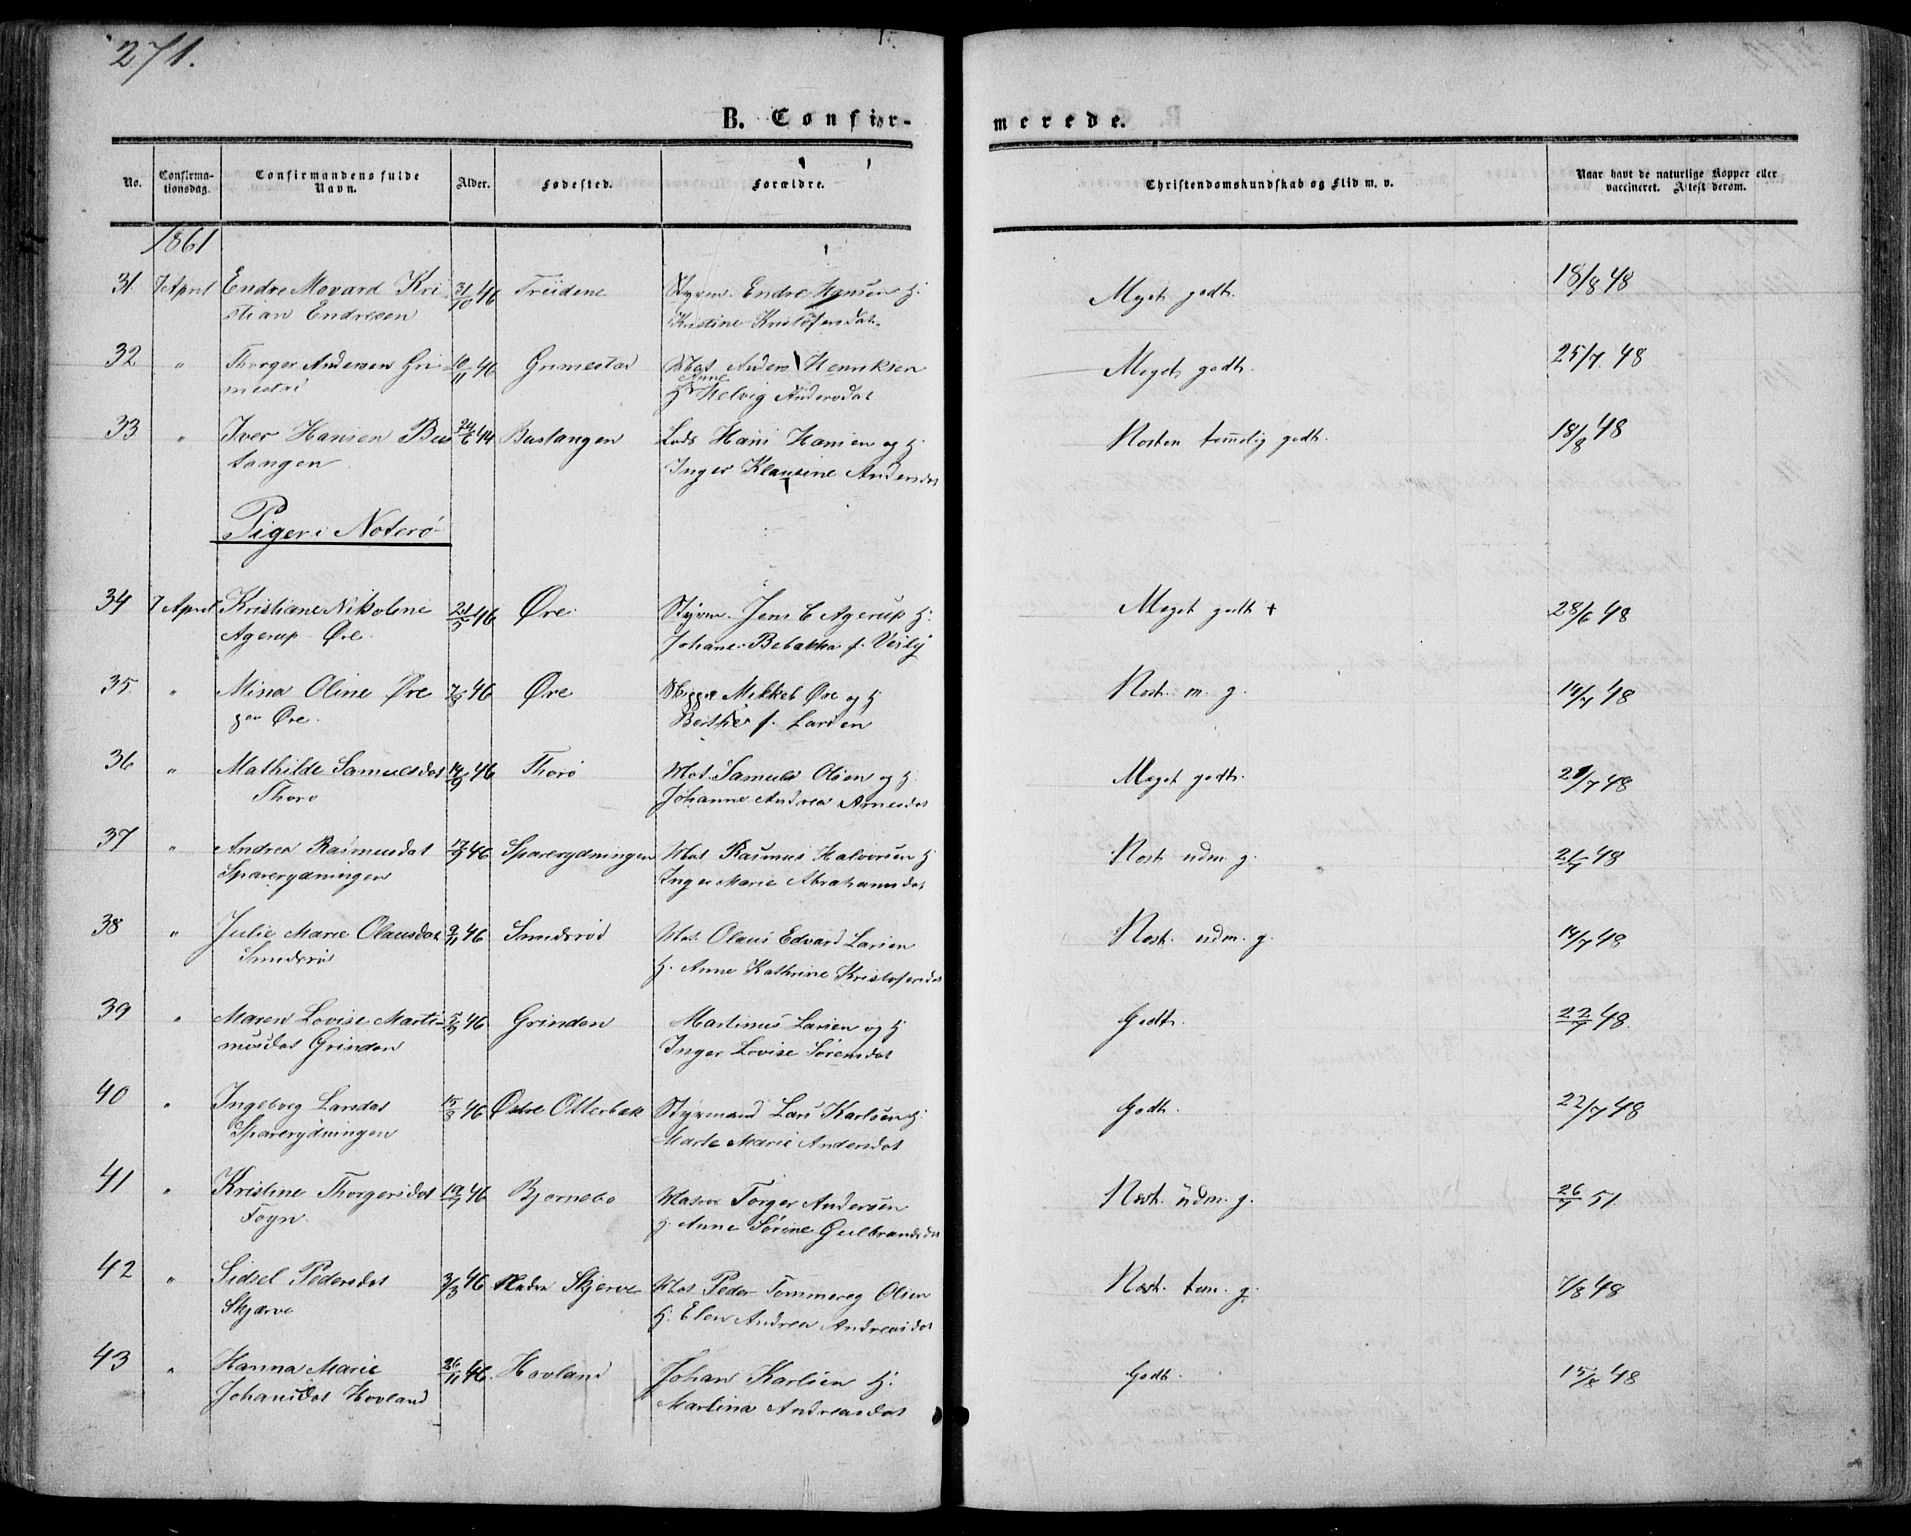 271.
B. Confir-
merede.
No.
Confirma-
tionsdag.
Confirmandens fulde
Navn.
Alder.
Fødested.
Forældre.
Christendomskundskab og Flid m. v.
Naar havt de naturlige Kopper eller
vaccineret. Attest derom.
1861
31 7 April Endre Movard Kri 31/10 46 Endre Hansen H: Meget godt. 18/8 48
stian Endresen Kristine Kristofersdat.
32 " Thorger Andersen Gri 10/11 46 Grimestad Mat Anders Henriksen Meget godt. 25/7 48
mestad Anne
H Helvig Andersdat
33 " Iver Hansen Bus 24/6 44 Bustangen Lods Hans Hansen og H: Næsten temelig godt. 18/8 48
tangen Inger Klausine Andersdat
Piger i Nøterø
34 7 April Kristiane Nikoline 21/5 46 Øre Styrm. Jens C Agerup H: Meget godt + 28/6 48
Agerup Øre Johane Bebekka f.
35 " Mina Oline Øre 7/8 46 Øre Mikkel Øre og H Næst. m. g. 14/7 48
gen Øre. Berthe f. Larsen
36 " Mathilde Samuelsdat 14/9 46 Thorø Mat. Samuel Olsen og H: Meget godt. 21/7 48
Thorø Johanne Andrea Arnesdat
37 " Andrea Rasmusdat 17/9 46 Sparerydningen Mat Rasmus Halvorsen H Næst udm. g. 21/7 48
Sparerydningen Inger Marie Abrahamsdat
38 " Julie Marie Olausdat 9/11 46 Smidsrød Mat. Olaus Edvard Larsen Næst. udm. g. 14/7 48
Smidsrød H. Anne Kathrine Kristofersdat
39 " Maren Lovise Marti- 5/9 46 Grinden Martinus Larsen og H Godt. 22/7 48.
nusdat Grinden Inger Lovise Sørensdat
40 " Ingeborg Larsdat 15/8 46 Østre Otterbæk Styrmand Lars Karlsen H: Godt. 22/7 48
Sparerydningen Marte Marie Andersdat
41 " Kristine Thorgersdat 19/7 46 Bjørnebo Matros Torger Andersen Næst. üdm. g. 26/7 51.
Foyn. H. Anne Sørine Gulbrandsdat
42 " Sidsel Pedersdat 3/3 46 Nedre Skjerve Mat Peder Tommereg Olsen Næst. tem. g. 7/8 48
Skjærve H. Elen Andrea Andreasdat
43 " Hanna Marie 26/11 46. Hovland Johan Karlsen H: Godt. 15/8 48
Johansdat Hovland Martina Andreasdat